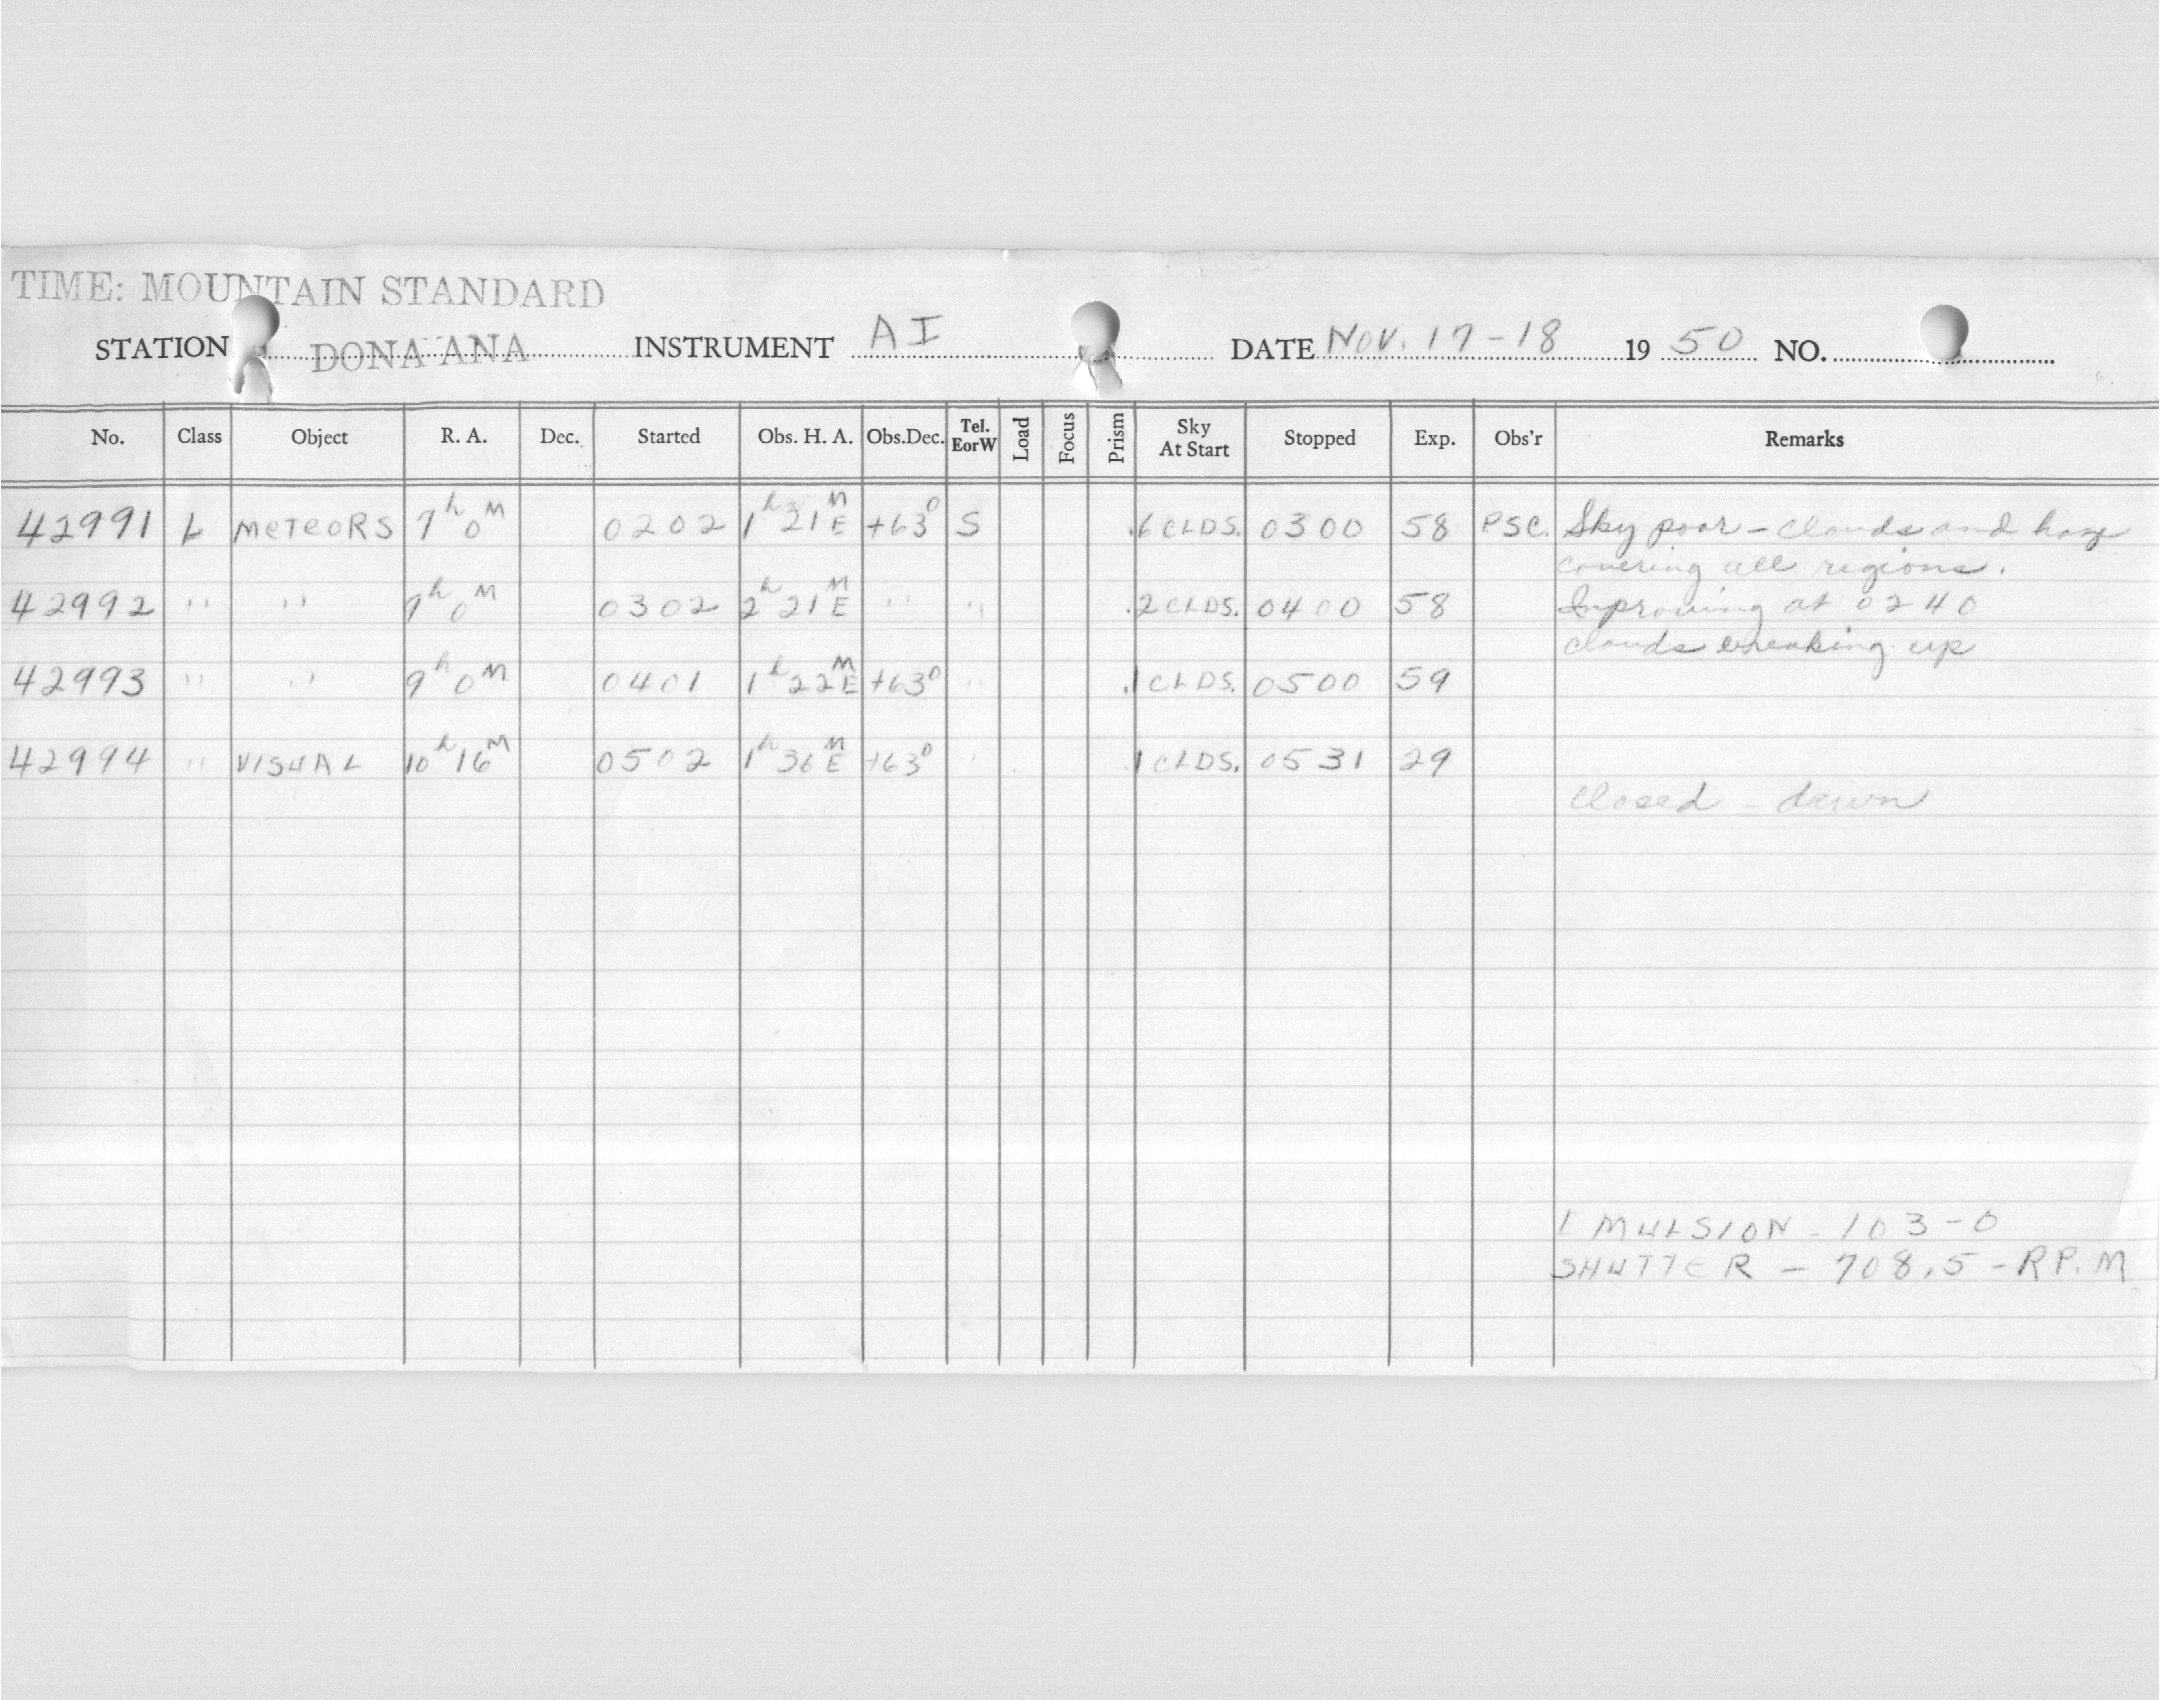 TIME: MOUNTAIN STANDARD
STATION DONA ANA INSTRUMENT AI DATE NOV. 17-18 1950 NO.
No. Class Object R. A. Dec. Started Obs. H. A. Obs.Dec. Tel. EorW Load Focus Prism Sky At Start Stopped Exp. Obs'r Remarks
42991 L METEORS 7h 0M 0202 1h 21M E +63° S .6 CLDS. 0300 58 PSC. Sky poor - clouds and haze
covering all regions.
42992 " " 9h 0M 0302 2h 21M E " " .2 CLDS. 0400 58 Improving at 0240
clouds breaking up
42993 " " 9h 0M 0401 1h 22M E +63° " .1 CLDS. 0500 59
42994 " VISUAL 10h 16M 0502 1h 36M E +63° " .1 CLDS. 0531 29
Closed - dawn
EMULSION - 103-O
SHUTTER - 708.5 - RP.M